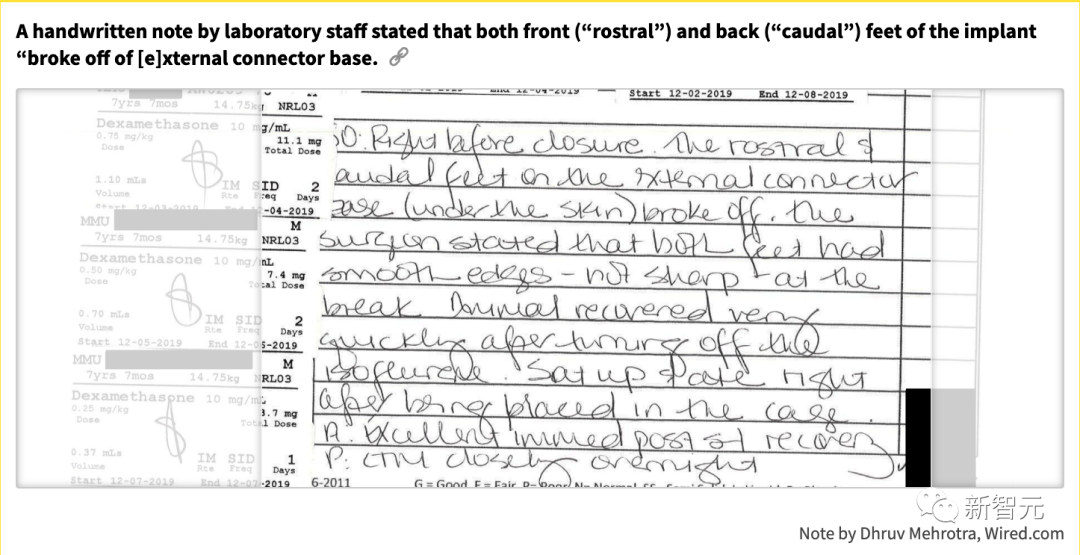 A handwritten note by laboratory staff stated that both front (“rostral”) and back (“caudal”) feet of the implant
“broke off of [e]xternal connector base.
7yrs 7mos 14.75kg NRL03
Start 12-02-2019 End 12-08-2019
Dexamethasone 10 mg/mL
0.75 mg/kg
Dose
11.1 mg
Total Dose
1.10 mLs
Volume
IM SID 2
Rte Freq Days
-04-2019
MMU M
7yrs 7mos 14.75kg NRL03
Dexamethasone 10 mg/mL
0.50 mg/kg
Dose
7.4 mg
Total Dose
0.70 mLs
Volume
IM SID 2
Rte Freq Days
Start 12-05-2019 End 12-06-2019
MMU M
7yrs 7mos 14.75kg RL03
Dexamethasone 10 mg/mL
0.25 mg/kg
Dose
3.7 mg
Total Dose
0.37 mLs
Volume
IM SID 1
Rte Freq Days
Start 12-07-2019 End 12-07-2019
O: Right before closure. The rostral &
audal feet on the external connector
ase (under the skin) broke off. The
surgeon stated that both feet had
smooth edges - not sharp - at the
break Animal recovered very
quickly after turning off the
isoflurene. Sat up & ate right
after being placed in the cage.
A: Excellent immed post recovery
P: CTM closely overnight
6-2011 G = Good F = Fair
新智元
Note by Dhruv Mehrotra, Wired.com